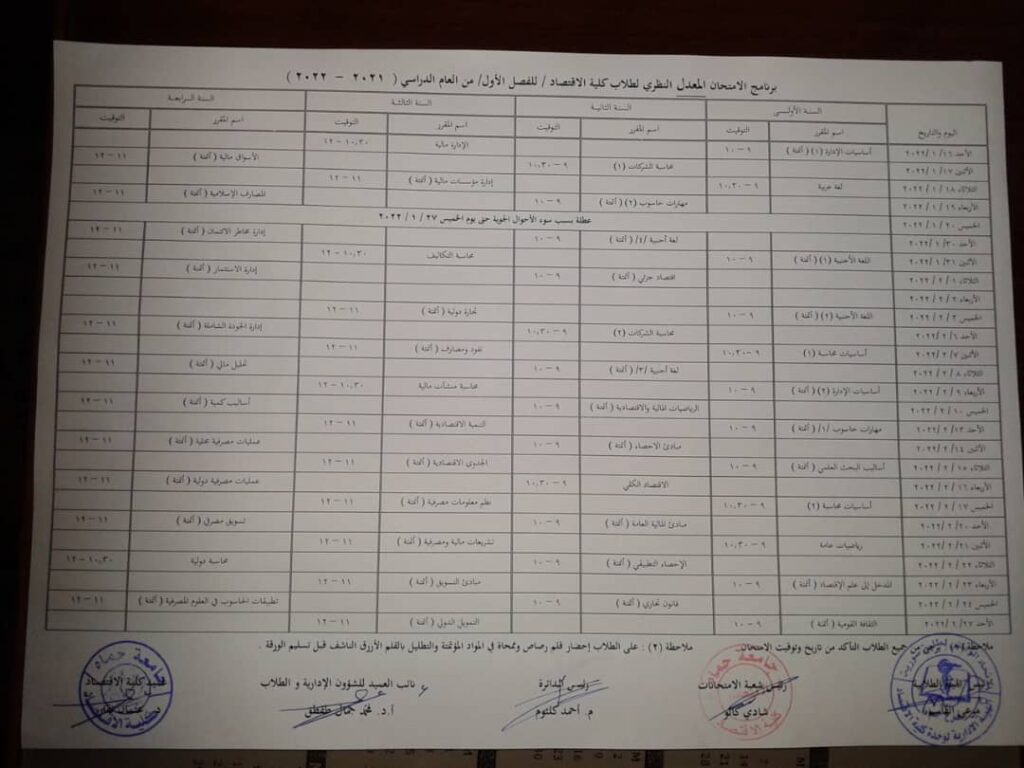 برنامج الامتحان المعدل النظري لطلاب كلية الاقتصاد / للفصل الأول/ من العام الدراسي ( ٢٠٢١ – ٢٠٢٢ )
اليوم والتاريخ السنة الأولى السنة الثانية السنة الثالثة السنة الرابعة
اسم المقرر التوقيت اسم المقرر التوقيت اسم المقرر التوقيت اسم المقرر التوقيت
الأحد ١٦ / ١ /٢٠٢٢ أساسيات الإدارة (١) ( أتمتة ) ٩ – ١٠ الإدارة مالية ١٠,٣٠ – ١٢
الأثنين ١٧ / ١ /٢٠٢٢ محاسبة الشركات (١) ٩ – ١٠,٣٠ الأسواق مالية ( أتمتة ) ١١ – ١٢
الثلاثاء ١٨ / ١ / ٢٠٢٢ لغة عربية ٩ – ١٠,٣٠ إدارة مؤسسات مالية ( أتمتة ) ١١ – ١٢
الأربعاء ١٩ / ١ / ٢٠٢٢ مهارات حاسوب (٢) ( أتمتة ) ٩ – ١٠ المصارف الإسلامية ( أتمتة ) ١١ – ١٢
الخميس ٢٠ / ١ / ٢٠٢٢ عطلة بسبب سوء الأحوال الجوية حتى يوم الخميس ٢٧ / ١ / ٢٠٢٢
الأحد ٣٠ / ١ /٢٠٢٢ لغة أجنبية /٤/ ( أتمتة ) ٩ – ١٠ إدارة مخاطر الائتمان ( أتمتة ) ١١ – ١٢
الأثنين ٣١ / ١ /٢٠٢٢ اللغة الأجنبية (١) ( أتمتة ) ٩ – ١٠ محاسبة التكاليف ١٠,٣٠ – ١٢
الثلاثاء ١ / ٢ / ٢٠٢٢ اقتصاد جزئي ( أتمتة ) ٩ – ١٠ إدارة الاستثمار ( أتمتة ) ١١ – ١٢
الأربعاء ٢ / ٢ / ٢٠٢٢
الخميس ٣ / ٢ / ٢٠٢٢ اللغة الأجنبية (٢) ( أتمتة ) ٩ – ١٠ تجارة دولية ( أتمتة ) ١١ – ١٢
الأحد ٦ / ٢ /٢٠٢٢ محاسبة الشركات (٢) ٩ – ١٠,٣٠ إدارة الجودة الشاملة ( أتمتة ) ١١ – ١٢
الأثنين ٧ / ٢ /٢٠٢٢ أساسيات محاسبة (١) ٩ – ١٠,٣٠ نقود ومصارف ( أتمتة ) ١١ – ١٢
الثلاثاء ٨ / ٢ / ٢٠٢٢ لغة أجنبية /٣/ ( أتمتة ) ٩ – ١٠ تحليل مالي ( أتمتة ) ١١ – ١٢
الأربعاء ٩ / ٢ / ٢٠٢٢ أساسيات الإدارة (٢) ( أتمتة ) ٩ – ١٠ محاسبة منشآت مالية ١٠,٣٠ – ١٢
الخميس ١٠ / ٢ / ٢٠٢٢ الرياضيات المالية والاقتصادية ( أتمتة ) ٩ – ١٠ أساليب كمية ( أتمتة ) ١١ – ١٢
الأحد ١٣ / ٢ /٢٠٢٢ مهارات حاسوب /١/ ( أتمتة ) ٩ – ١٠ التنمية الاقتصادية ( أتمتة ) ١١ – ١٢
الأثنين ١٤ / ٢ /٢٠٢٢ مبادئ الاحصاء ( أتمتة ) ٩ – ١٠ عمليات مصرفية محلية ( أتمتة ) ١١ – ١٢
الثلاثاء ١٥ / ٢ / ٢٠٢٢ أساليب البحث العلمي ( أتمتة ) ٩ – ١٠ الجدوى الاقتصادية ( أتمتة ) ١١ – ١٢
الأربعاء ١٦ / ٢ / ٢٠٢٢ الاقتصاد الكلي ٩ – ١٠,٣٠ عمليات مصرفية دولية ( أتمتة ) ١١ – ١٢
الخميس ١٧ / ٢ / ٢٠٢٢ أساسيات محاسبة (٢) ٩ – ١٠,٣٠ نظم معلومات مصرفية ( أتمتة ) ١١ – ١٢
الأحد ٢٠ / ٢ /٢٠٢٢ مبادئ المالية العامة ( أتمتة ) ٩ – ١٠ تسويق مصرفي ( أتمتة ) ١١ – ١٢
الأثنين ٢١ / ٢ /٢٠٢٢ رياضيات عامة ٩ – ١٠,٣٠ تشريعات مالية ومصرفية ( أتمتة ) ١١ – ١٢
الثلاثاء ٢٢ / ٢ / ٢٠٢٢ الإحصاء التطبيقي ( أتمتة ) ٩ – ١٠ محاسبة دولية ١٠,٣٠ – ١٢
الأربعاء ٢٣ / ٢ / ٢٠٢٢ المدخل إلى علم الاقتصاد ( أتمتة ) ٩ – ١٠ مبادئ التسويق ( أتمتة ) ١١ – ١٢
الخميس ٢٤ / ٢ / ٢٠٢٢ قانون تجاري ( أتمتة ) ٩ – ١٠ تطبيقات الحاسوب في العلوم المصرفية ( أتمتة ) ١١ – ١٢
الأحد ٢٧ / ٢ /٢٠٢٢ الثقافة القومية ( أتمتة ) ٩ – ١٠ التمويل الدولي ( أتمتة ) ١١ – ١٢
ملاحظة جميع الطلاب التأكد من تاريخ وتوقيت الامتحان ملاحظة (٢) : على الطلاب إحضار قلم رصاص وممحاة في المواد المؤتمتة والتظليل بالقلم الأزرق الناشف قبل تسليم الورقة .
رئيس شعبة الامتحانات رئيس الدائرة نائب العميد للشؤون الإدارية و الطلاب عميد كلية الاقتصاد
شادي كالو م. أحمد كلثوم أ.د. محمد جمال طقطق
جامعة حماه
كلية الاقتصاد
جامعة حماه
كلية الاقتصاد